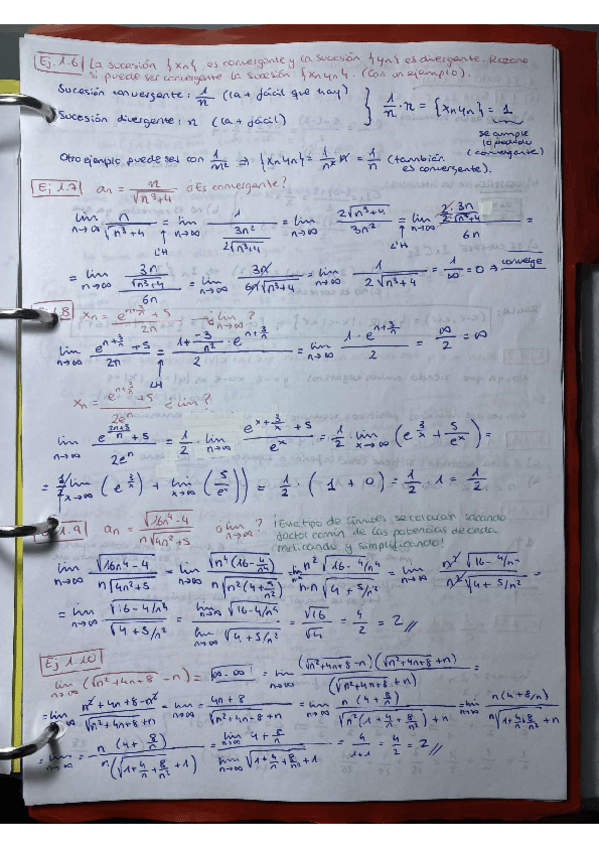 Ej.1.6 La sucesión {xn} es convergente y la sucesión {yn} es divergente. Razone
si puede ser convergente la sucesión {xnyn}. (Con un ejemplo).
Sucesión convergente: 1/n (la + fácil que hay) } 1/n · n = {xnyn} = 1
Sucesión divergente: n (la + fácil)
se cumple
lo pedido
(convergente)
Otro ejemplo puede ser con 1/n² ⇒ {xnyn} = 1/n² · n = 1/n (también
es convergente).
Ej 1.7 an = n/√(n³+4) ¿Es convergente?
lim n→∞ n/√(n³+4) = lim n→∞ 1/(3n²/(2√(n³+4))) = lim n→∞ 2√(n³+4)/3n² = lim n→∞ (2·3n/(2·√(n³+4)))/6n =
L'H L'H
= lim n→∞ (3n/√(n³+4))/6n = lim n→∞ 3n/(6n√(n³+4)) = lim n→∞ 1/(2√(n³+4)) = 1/∞ = 0 → converge
1.8 xn = (e^(n+3/n) + 5)/2n ¿lim n→∞?
lim n→∞ (e^(n+3/n) + 5)/2n = (1+ -3/n² · e^(n+3/n))/2 = lim n→∞ (1·e^(n+3/n))/2 = ∞/2 = ∞
L'H
xn = (e^(n+3/n) + 5)/2eⁿ ¿lim?
lim n→∞ (e^(3n+3/n) + 5)/2eⁿ = 1/2 · lim n→∞ (e^(x+3/x) + 5)/eˣ = 1/2 · lim x→∞ (e^(3/x) + 5/eˣ) =
= 1/2 (lim x→∞ (e^(3/x)) + lim x→∞ (5/eˣ)) = 1/2 · (1 + 0) = 1/2 · 1 = 1/2
1.9 an = √(16n⁴-4)/(n√(4n²+5)) ¿lim n→∞? ¡Este tipo de límites se calculan sacando
factor común de las potencias de cada
radicando y simplificando!
lim n→∞ √(16n⁴-4)/(n√(4n²+5)) = lim n→∞ √(n⁴(16-4/n⁴))/(n√(n²(4+5/n²))) = lim n→∞ n²√(16-4/n⁴)/(n·n√(4+5/n²)) = lim n→∞ n²√(16-4/n⁴)/(n²√(4+5/n²)) =
= lim n→∞ √(16-4/n⁴)/√(4+5/n²) = lim n→∞ √(16-4/n⁴)/lim n→∞ √(4+5/n²) = √16/√4 = 4/2 = 2 //
Ej 1.10
lim n→∞ (√(n²+4n+8) - n) = ¡∞-∞! = lim n→∞ (√(n²+4n+8) - n)(√(n²+4n+8) + n)/(√(n²+4n+8) + n) =
= lim n→∞ (n²+4n+8-n²)/(√(n²+4n+8)+n) = lim n→∞ (4n+8)/(√(n²+4n+8)+n) = lim n→∞ n(4+8/n)/(√(n²(1+4/n+8/n²))+n) = lim n→∞ n(4+8/n)/(n√(1+4/n+8/n²)+n)
= lim n→∞ n(4+8/n)/(n(√(1+4/n+8/n²)+1)) = lim n→∞ 4+8/n/lim n→∞ √(1+4/n+8/n²)+1 = 4/(1+1) = 4/2 = 2 //